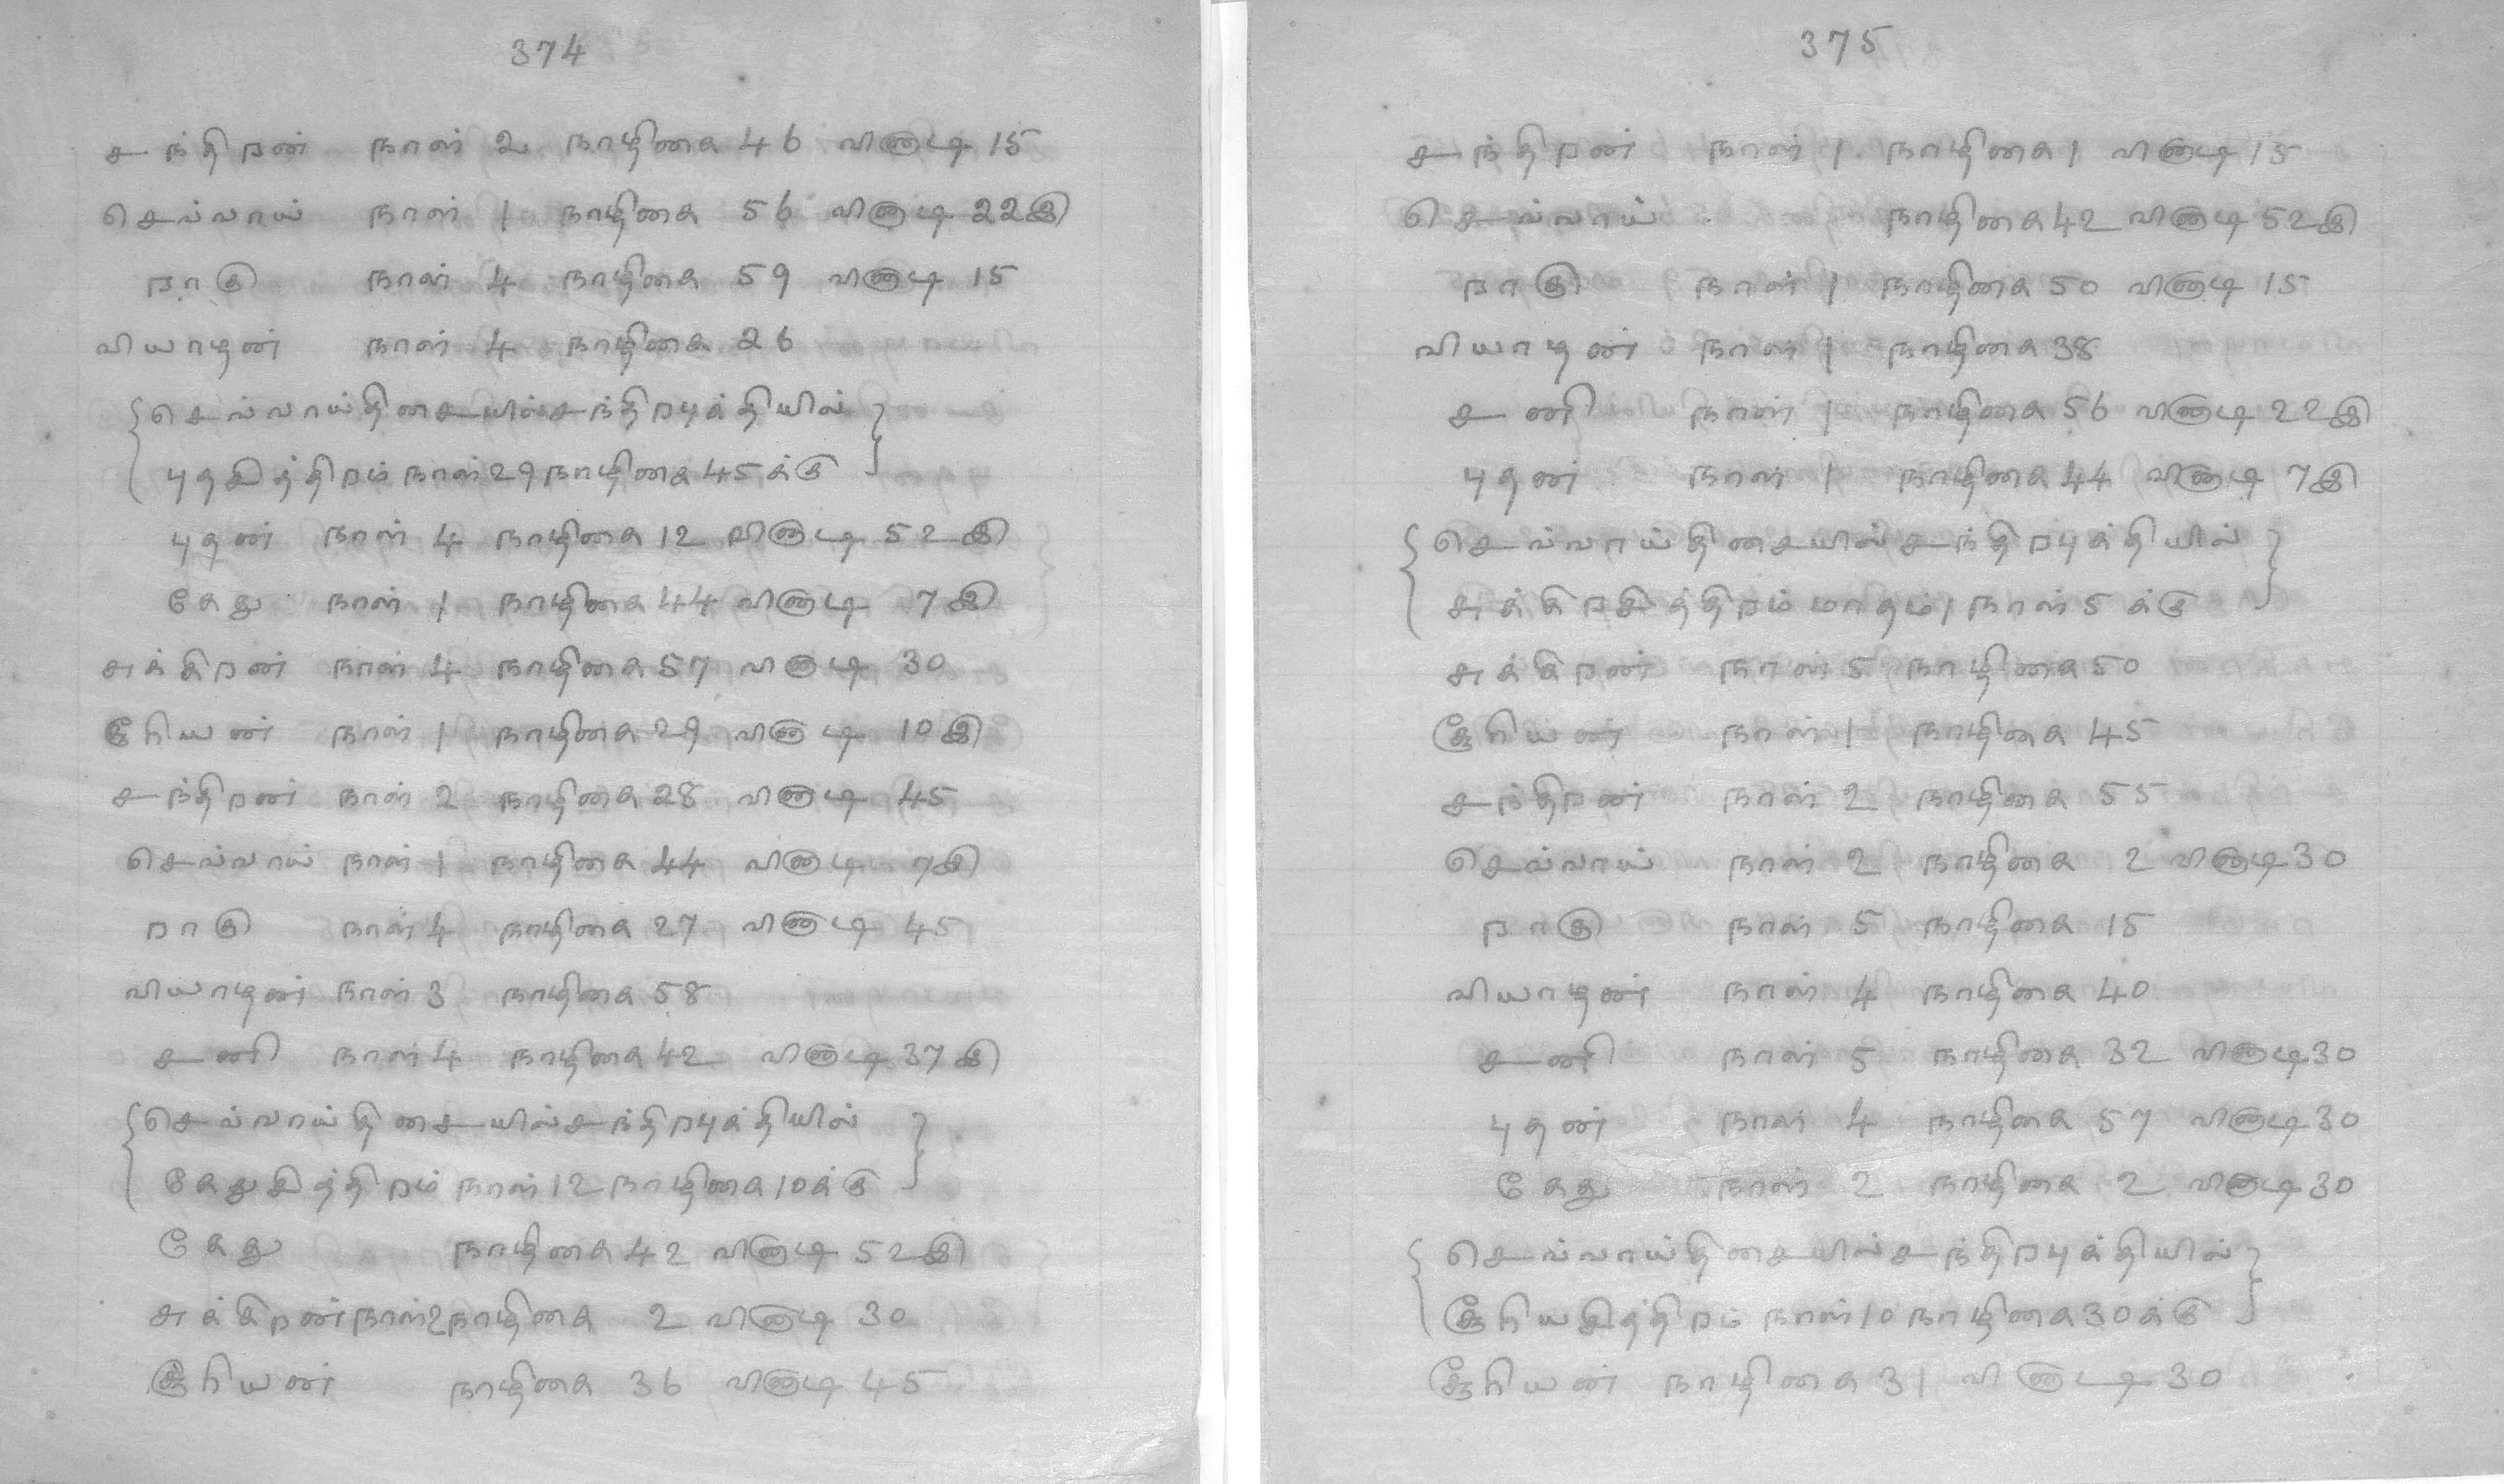 374
சந்திறன் நாள் 2 நாழிகை 46 வினாடி 15
செவ்வாய் நாள் 1 நாழிகை 56 வினாடி 22இ
றாகு நாள் 4 நாழிகை 59 வினாடி 15
வியாழன் நாள் 4 நாழிகை 26
{செவ்வாய்திசையில்சந்திறபுக்தியில்}
புதசித்திறம் நாள்29நாழிகை45க்கு
புதன் நாள் 4 நாழிகை 12 வினாடி 52இ
கேது நாள் 1 நாழிகை 44 வினாடி 7இ
சுக்கிறன் நாள் 4 நாழிகை 57 வினாடி 30
சூரியன் நாள் 1 நாழிகை 29 வினாடி 10இ
சந்திறன் நாள் 2 நாழிகை 28 வினாடி 45
செவ்வாய் நாள் 1 நாழிகை 44 வினாடி 7இ
றாகு நாள் 4 நாழிகை 27 வினாடி 45
வியாழன் நாள் 3 நாழிகை 58
சனி நாள் 4 நாழிகை 42 வினாடி 37இ
{செவ்வாய்திசையில்சந்திறபுக்தியில்}
கேதுசித்திறம் நாள்12நாழிகை10க்கு
கேது நாழிகை 42 வினாடி 52இ
சுக்கிறன்நாள்2நாழிகை 2 வினாடி 30
சூரியன் நாழிகை 36 வினாடி 45
375
சந்திறன் நாள் 1 நாழிகை 1 வினாடி 15
செவ்வாய் நாழிகை 42 வினாடி 52இ
றாகு நாள் 1 நாழிகை 50 வினாடி 15
வியாழன் நாள் 1 நாழிகை 38
சனி நாள் 1 நாழிகை 56 வினாடி 22இ
புதன் நாள் 1 நாழிகை 44 வினாடி 7இ
{செவ்வாய்திசையில்சந்திறபுக்தியில்}
சுக்கிறசித்திறம் மாதம்1நாள்5க்கு
சுக்கிறன் நாள் 5 நாழிகை 50
சூரியன் நாள் 1 நாழிகை 45
சந்திறன் நாள் 2 நாழிகை 55
செவ்வாய் நாள் 2 நாழிகை 2 வினாடி 30
றாகு நாள் 5 நாழிகை 15
வியாழன் நாள் 4 நாழிகை 40
சனி நாள் 5 நாழிகை 32 வினாடி 30
புதன் நாள் 4 நாழிகை 57 வினாடி 30
கேது நாள் 2 நாழிகை 2 வினாடி 30
{செவ்வாய்திசையில்சந்திறபுக்தியில்}
சூரியசித்திறம் நாள்10நாழிகை30க்கு
சூரியன் நாழிகை 31 வினாடி 30